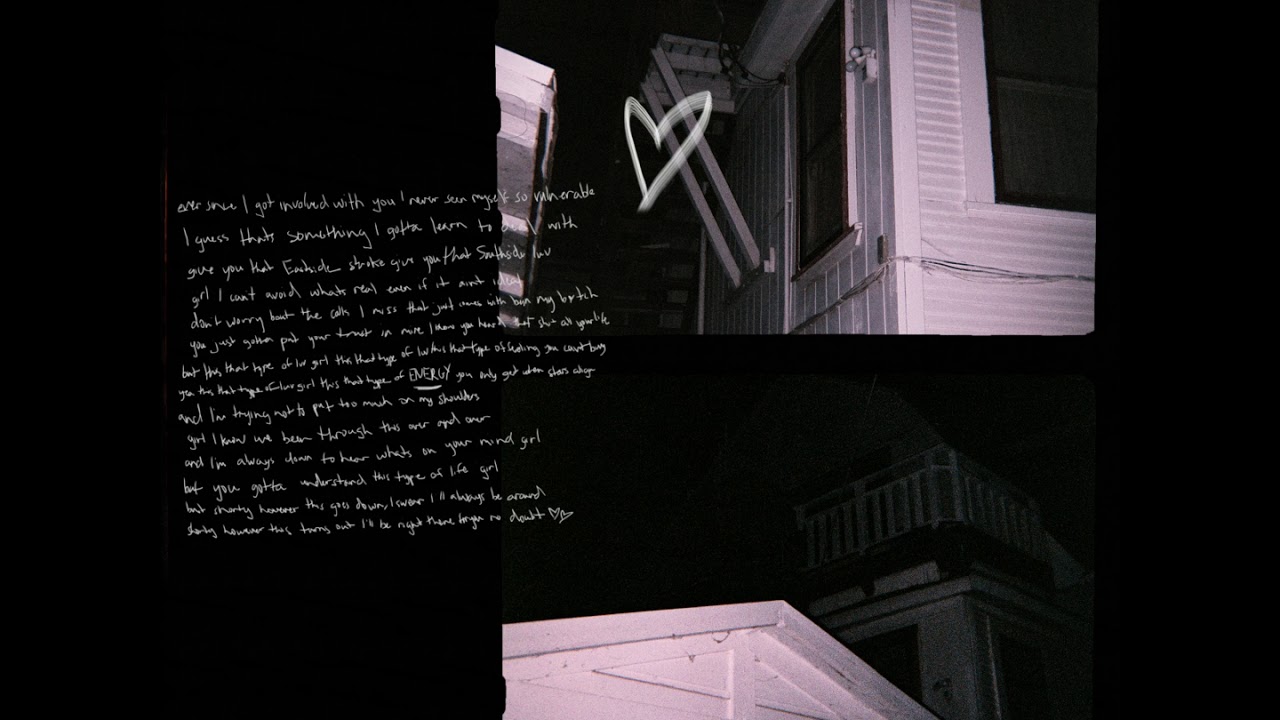 ever since I got involved with you I never seen myself so vulnerable
I guess thats something I gotta learn to with
give you that Eastside stroke give you that Southside luv
girl I cant avoid whats real even if it aint ideal
dont worry bout the calls I miss that just comes with bein my bxtch
you just gotta put your trust in me I know you heard that shit all your life
but this that type of luv girl this that type of luv this that type of feeling you cant buy
yea this that type of luv girl this that type of ENERGY you only get when stars align
and I'm trying not to put too much on my shoulders
girl I know we been through this over and over
and I'm always down to hear whats on your mind girl
but you gotta understand this type of life girl
but shorty however this goes down, I swear I'll always be around
shorty however this turns out I'll be right there for you no doubt